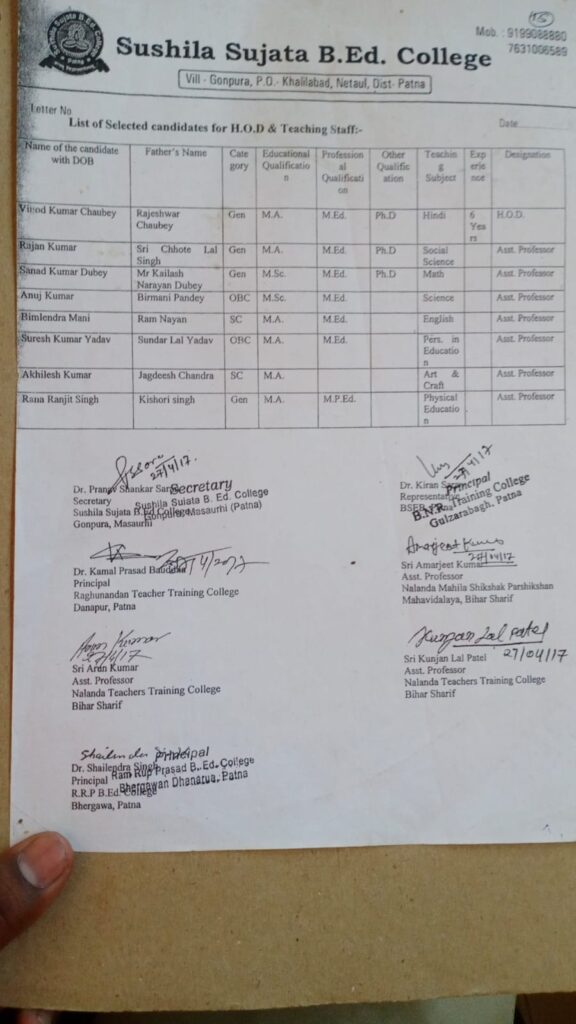 15
Sushila Sujata B.Ed. College
Patna
Mob. : 9199088880
7631006589
Sushila Sujata B.Ed. College
Vill - Gonpura, P.O.- Khalilabad, Netaul, Dist- Patna
Letter No
Date
List of Selected candidates for H.O.D & Teaching Staff:-
Name of the candidate with DOB Father's Name Cate gory Educational Qualificatio n Profession al Qualificati on Other Qualific ation Teachin g Subject Exp erie nce Designation
Vinod Kumar Chaubey Rajeshwar Chaubey Gen M.A. M.Ed. Ph.D Hindi 6 Yea rs H.O.D.
Rajan Kumar Sri Chhote Lal Singh Gen M.A. M.Ed. Ph.D Social Science Asst. Professor
Sanad Kumar Dubey Mr Kailash Narayan Dubey Gen M.Sc. M.Ed. Ph.D Math Asst. Professor
Anuj Kumar Birmani Pandey OBC M.Sc. M.Ed. Science Asst. Professor
Bimlendra Mani Ram Nayan SC M.A. M.Ed. English Asst. Professor
Suresh Kumar Yadav Sundar Lal Yadav OBC M.A. M.Ed. Pers. in Educatio n Asst. Professor
Akhilesh Kumar Jagdeesh Chandra SC M.A. Art & Craft Asst. Professor
Rana Ranjit Singh Kishori singh Gen M.A. M.P.Ed. Physical Educatio n Asst. Professor
27/4/17.
Dr. Pranav Shankar
Secretary
Secretary
Sushila Sujata B. Ed. College
Gonpura, Masaurhi (Patna)
Sushila Sujata B.Ed College
Gonpura, Masaurhi
27/4/17
Dr. Kiran
Representative
BSEB
Principal
B.N.R. Training College
Gulzarabagh, Patna
27/4/2017
Dr. Kamal Prasad
Principal
Raghunandan Teacher Training College
Danapur, Patna
Amarjeet Kumar
27/04/17
Sri Amarjeet Kumar
Asst. Professor
Nalanda Mahila Shikshak Parshikshan
Mahavidalaya, Bihar Sharif
Arun Kumar
27/4/17
Sri Arun Kumar
Asst. Professor
Nalanda Teachers Training College
Bihar Sharif
Kunjan Lal Patel
27/04/17
Sri Kunjan Lal Patel
Asst. Professor
Nalanda Teachers Training College
Bihar Sharif
Shailendra
Principal
Dr. Shailendra Singh
Principal
Ram Rup Prasad B. Ed. College
Bhergawan Dhanarua, Patna
R.R.P B.Ed. College
Bhergawa, Patna